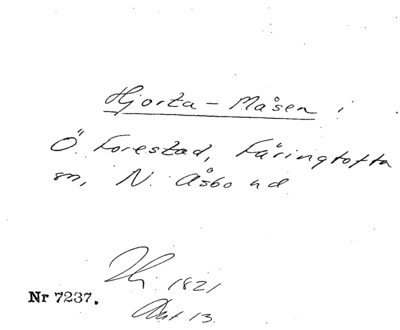 Hjorta-Måsen i
Ö. Forestad, Färingtofta
sn, N. Åsbo hd
1821
Nr 7237.
Akt 13